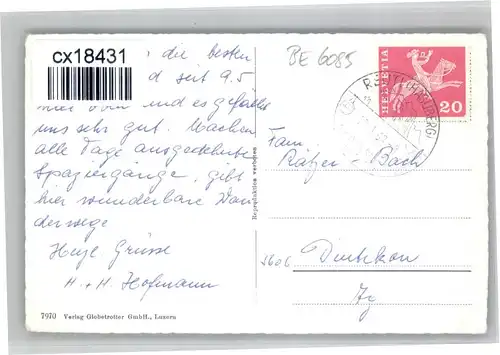 cx18431
die besten
d seit 9.5
hier oben und es gefällt
uns sehr gut. Machen
alle Tage ausgedehnte
Spaziergänge, gibt
hier wunderbare Wan
derwege
Herzl. Grüsse
H. + H. Hofmann
7970 Verlag Globetrotter GmbH., Luzern
Reproduktion verboten
BE 6085
HELVETIA
20
REUTI (HASLIBERG)
Fam.
Rätzer-Bach
5606 Dintikon
Ag